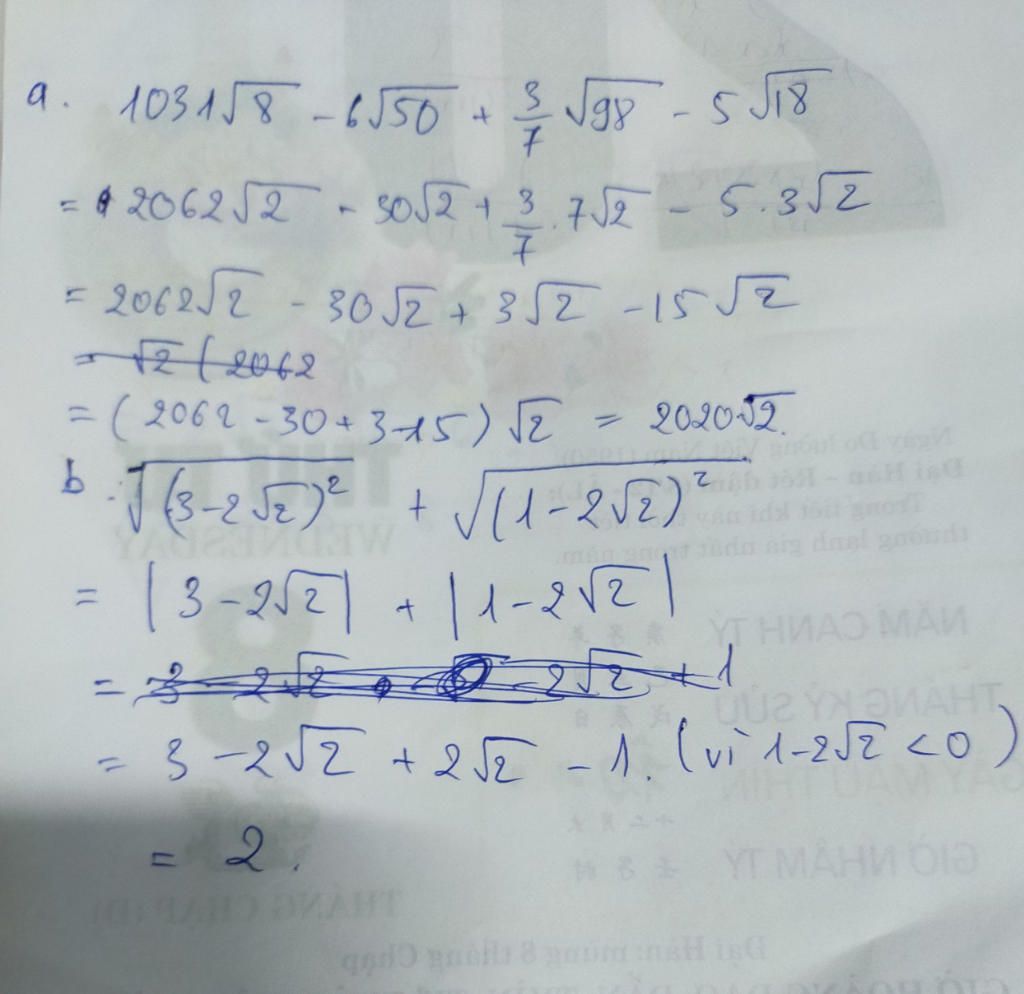 a. 1031√8 - 6√50 + 3/7 √98 - 5√18
= 2062√2 - 30√2 + 3/7 . 7√2 - 5.3√2
= 2062√2 - 30√2 + 3√2 - 15√2
= √2 ( 2062
= ( 2062 - 30 + 3 - 15 ) √2 = 2020√2.
b. √(3-2√2)² + √(1-2√2)²
= | 3 - 2√2 | + | 1 - 2√2 |
= 3 - 2√2 - 2√2 + 1
= 3 - 2√2 + 2√2 - 1. (vì 1-2√2 < 0)
= 2.
Ngày Đo lường Việt Nam (1950)
Đại Hàn - Rét đậm
Trong tiết khí này thời tiết
thường lạnh giá nhất trong năm.
THỨ TƯ
WEDNESDAY
8
NĂM CANH TÝ
THÁNG KỶ SỬU
NGÀY MẬU THÌN
GIỜ NHÂM TÝ
THÁNG CHẠP (Đ)
Đại Hàn: mùng 8 tháng Chạp